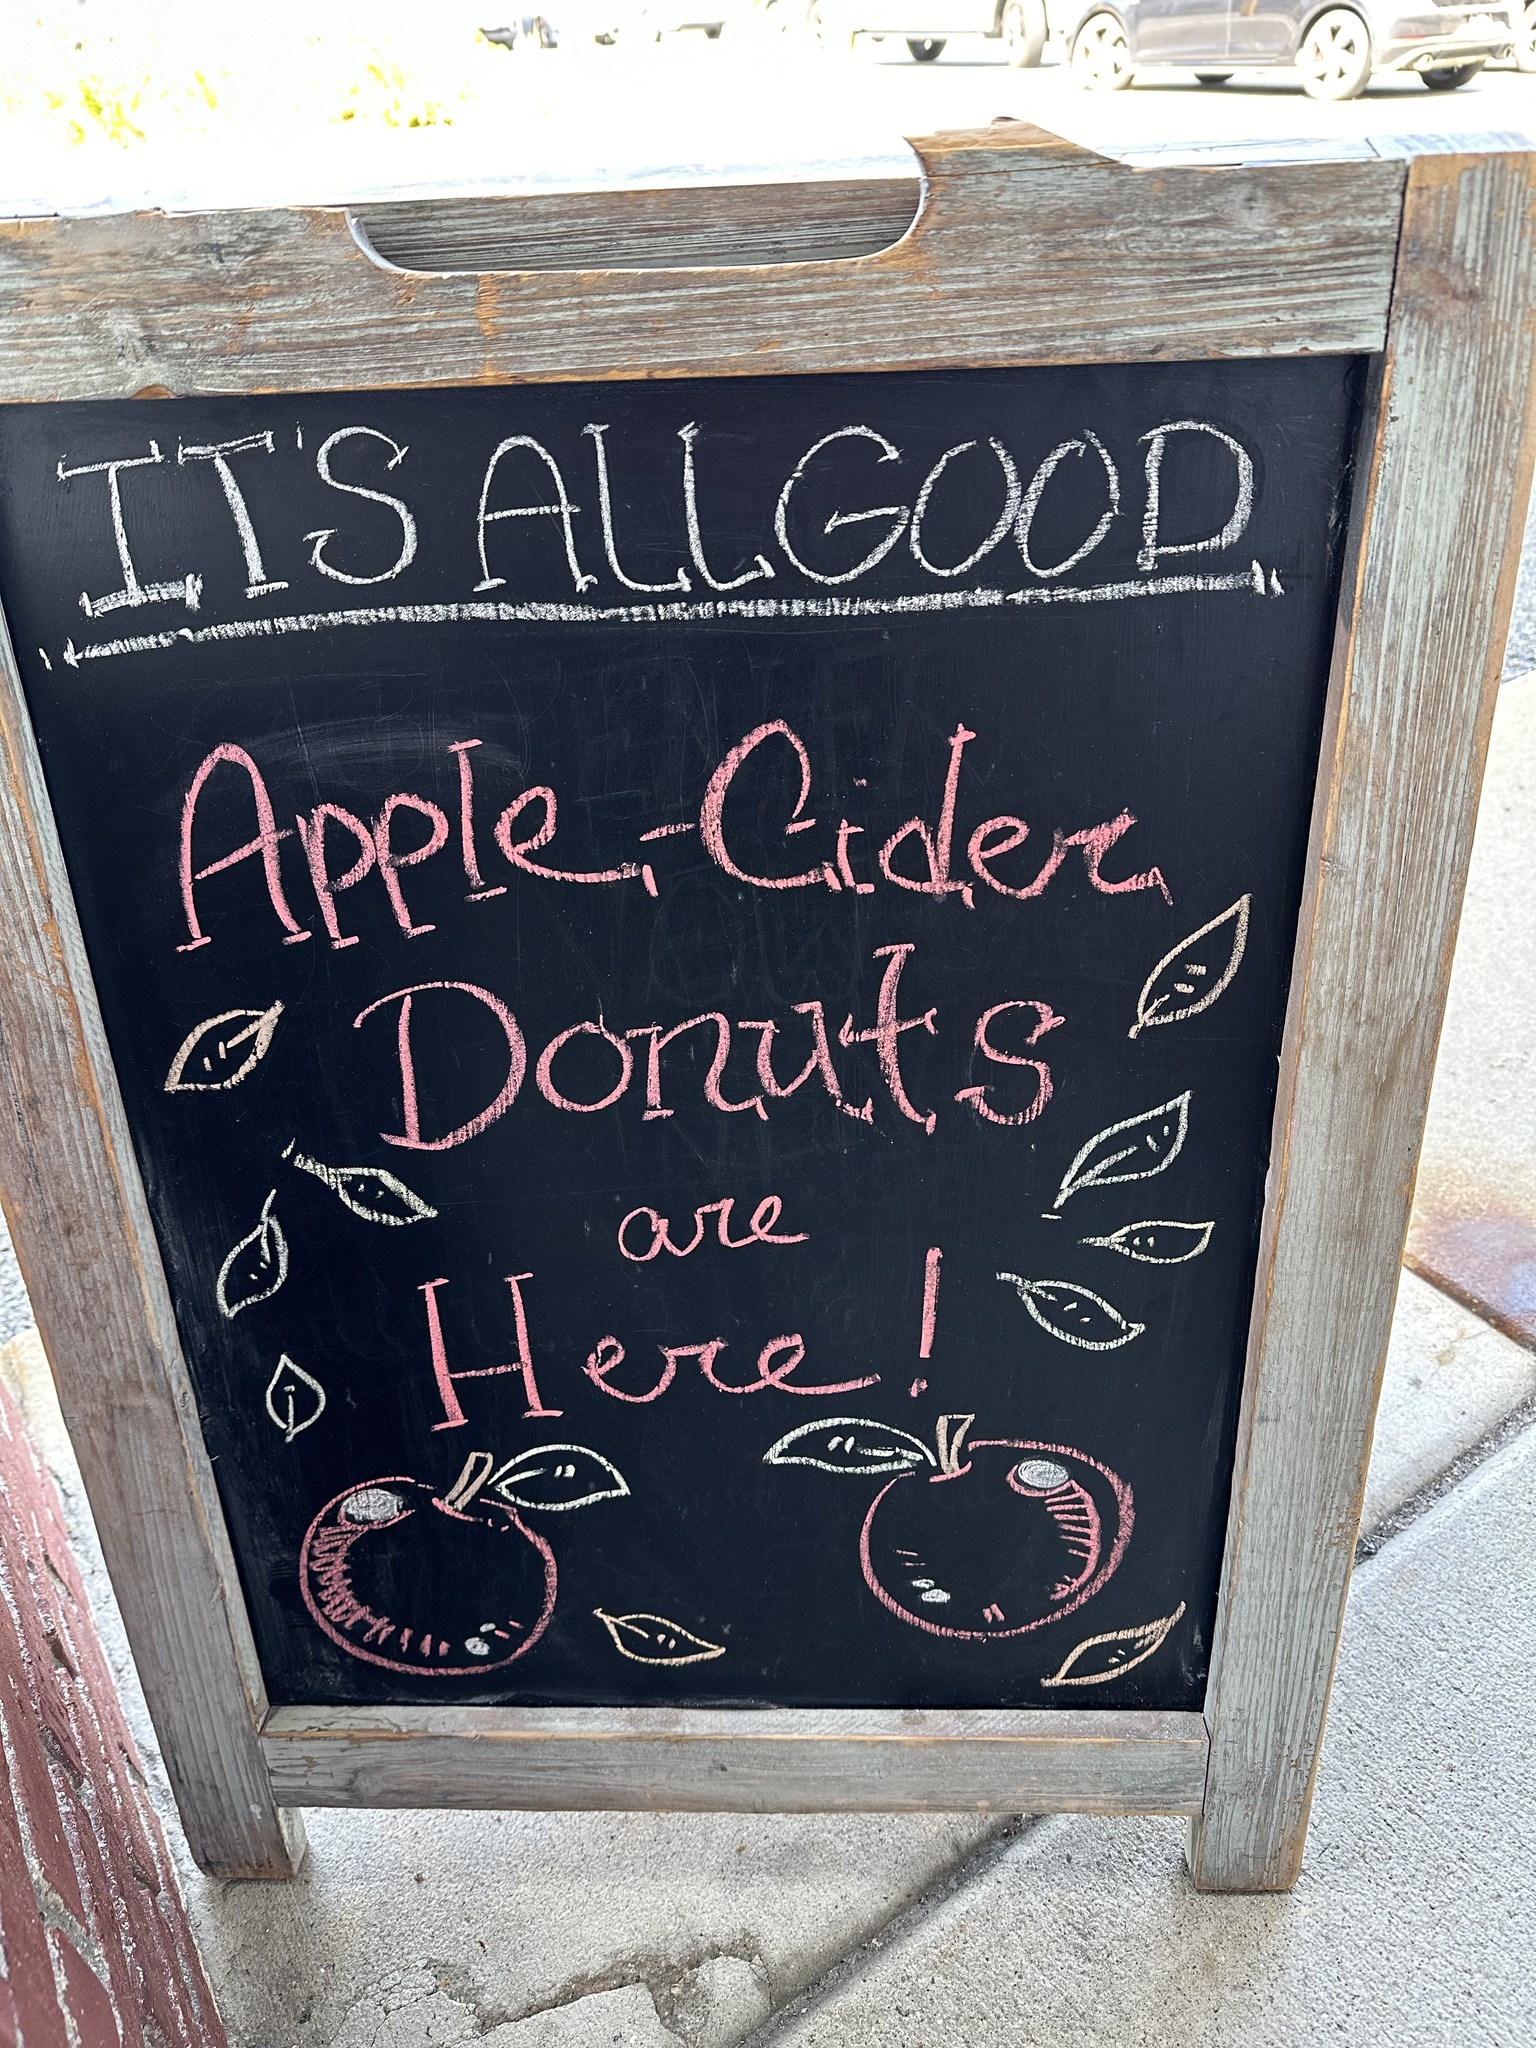 IT'S ALL GOOD
Apple-Cider
Donuts
are
Here!